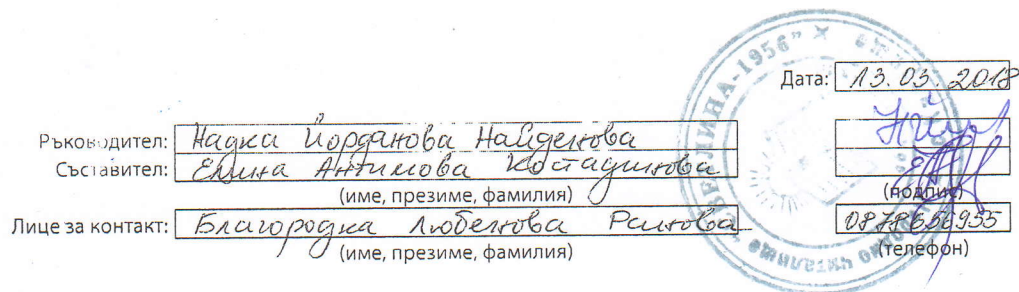 Дата: 13.03.2018
Ръководител: Надка Йорданова Найденова
Съставител: Елина Антимова Костадинова
(име, презиме, фамилия) (подпис)
Лице за контакт: Благородка Любенова
(име, презиме, фамилия) (телефон)
"СВЕТЛИНА-1956"
читалище